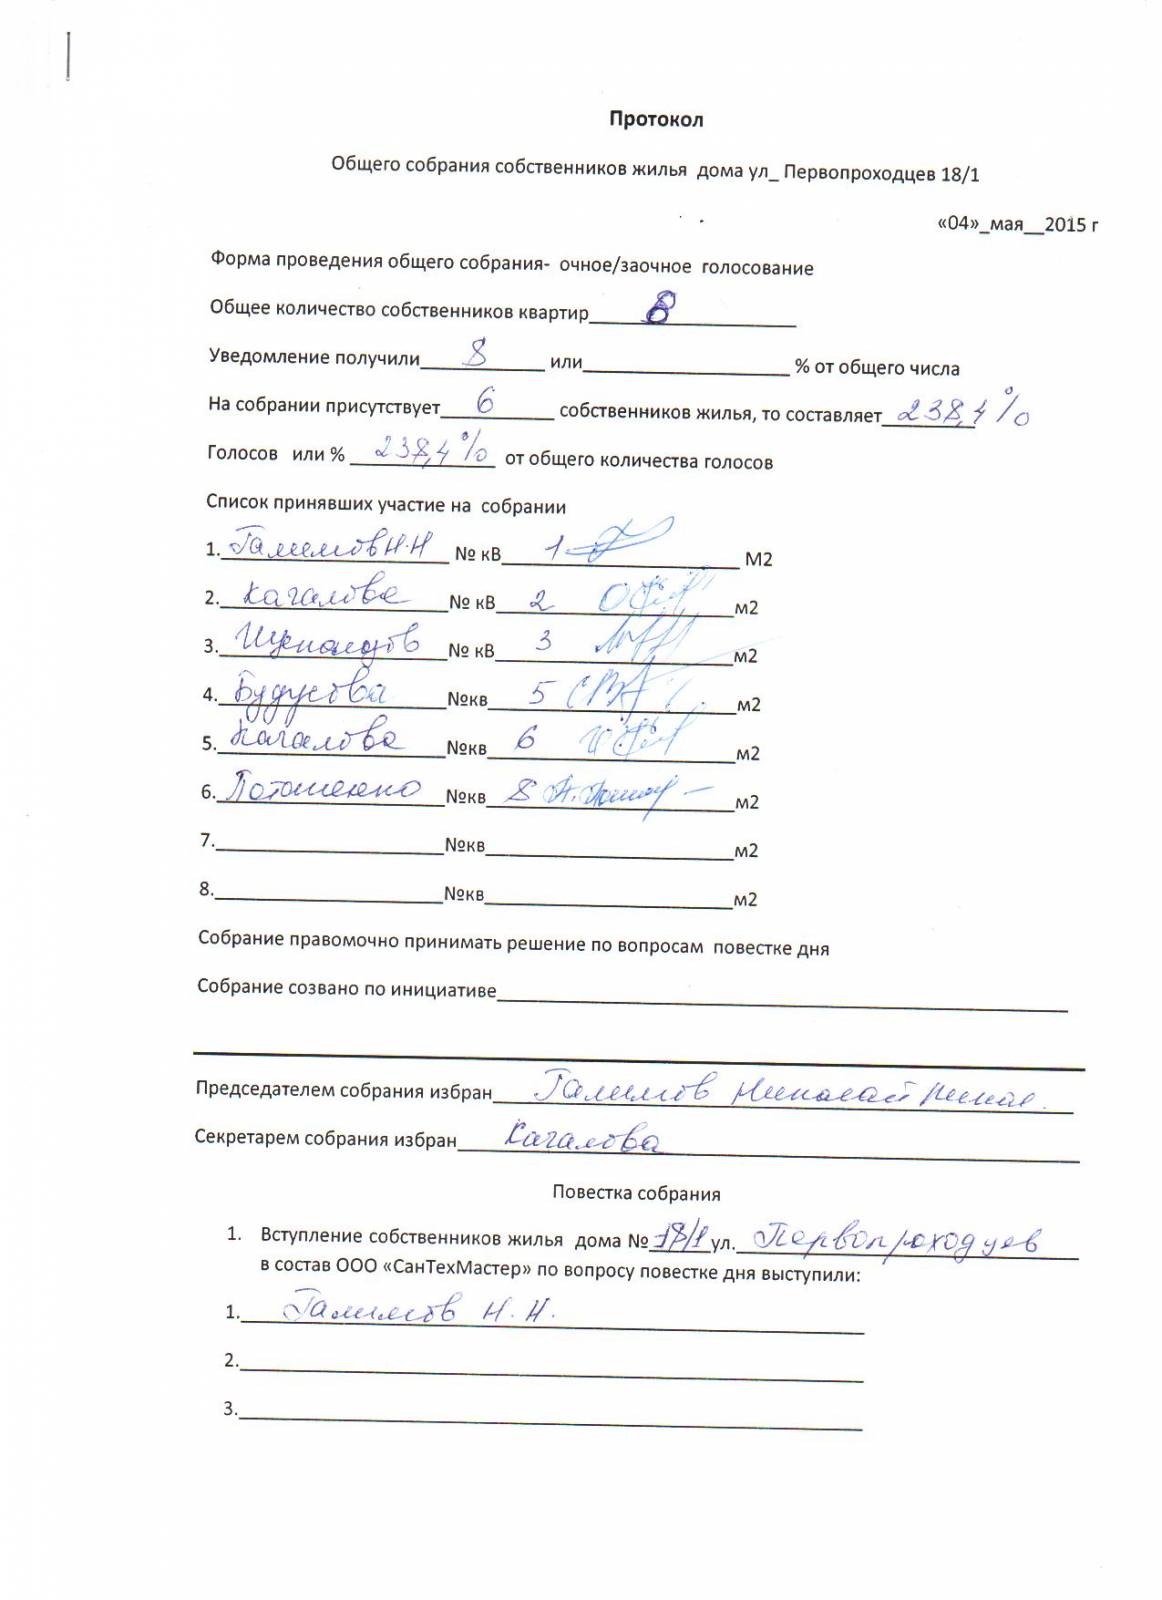 Протокол
Общего собрания собственников жилья дома ул_ Первопроходцев 18/1
«04»_мая__2015 г
Форма проведения общего собрания- очное/заочное голосование
Общее количество собственников квартир 8
Уведомление получили 8 или % от общего числа
На собрании присутствует 6 собственников жилья, то составляет 238,4 %
Голосов или % 238,4 % от общего количества голосов
Список принявших участие на собрании
1. Галимов Н.Н № кВ 1 М2
2. Кагалова № кВ 2 м2
3. № кВ 3 м2
4. №кв 5 м2
5. Кагалова №кв 6 м2
6. Поташенко №кв 8 м2
7. №кв м2
8. №кв м2
Собрание правомочно принимать решение по вопросам повестке дня
Собрание созвано по инициативе
Председателем собрания избран Галимов Николай Никол.
Секретарем собрания избран Кагалова
Повестка собрания
1. Вступление собственников жилья дома № 18/1 ул. Первопроходцев
в состав ООО «СанТехМастер» по вопросу повестке дня выступили:
1. Галимов Н.Н.
2.
3.